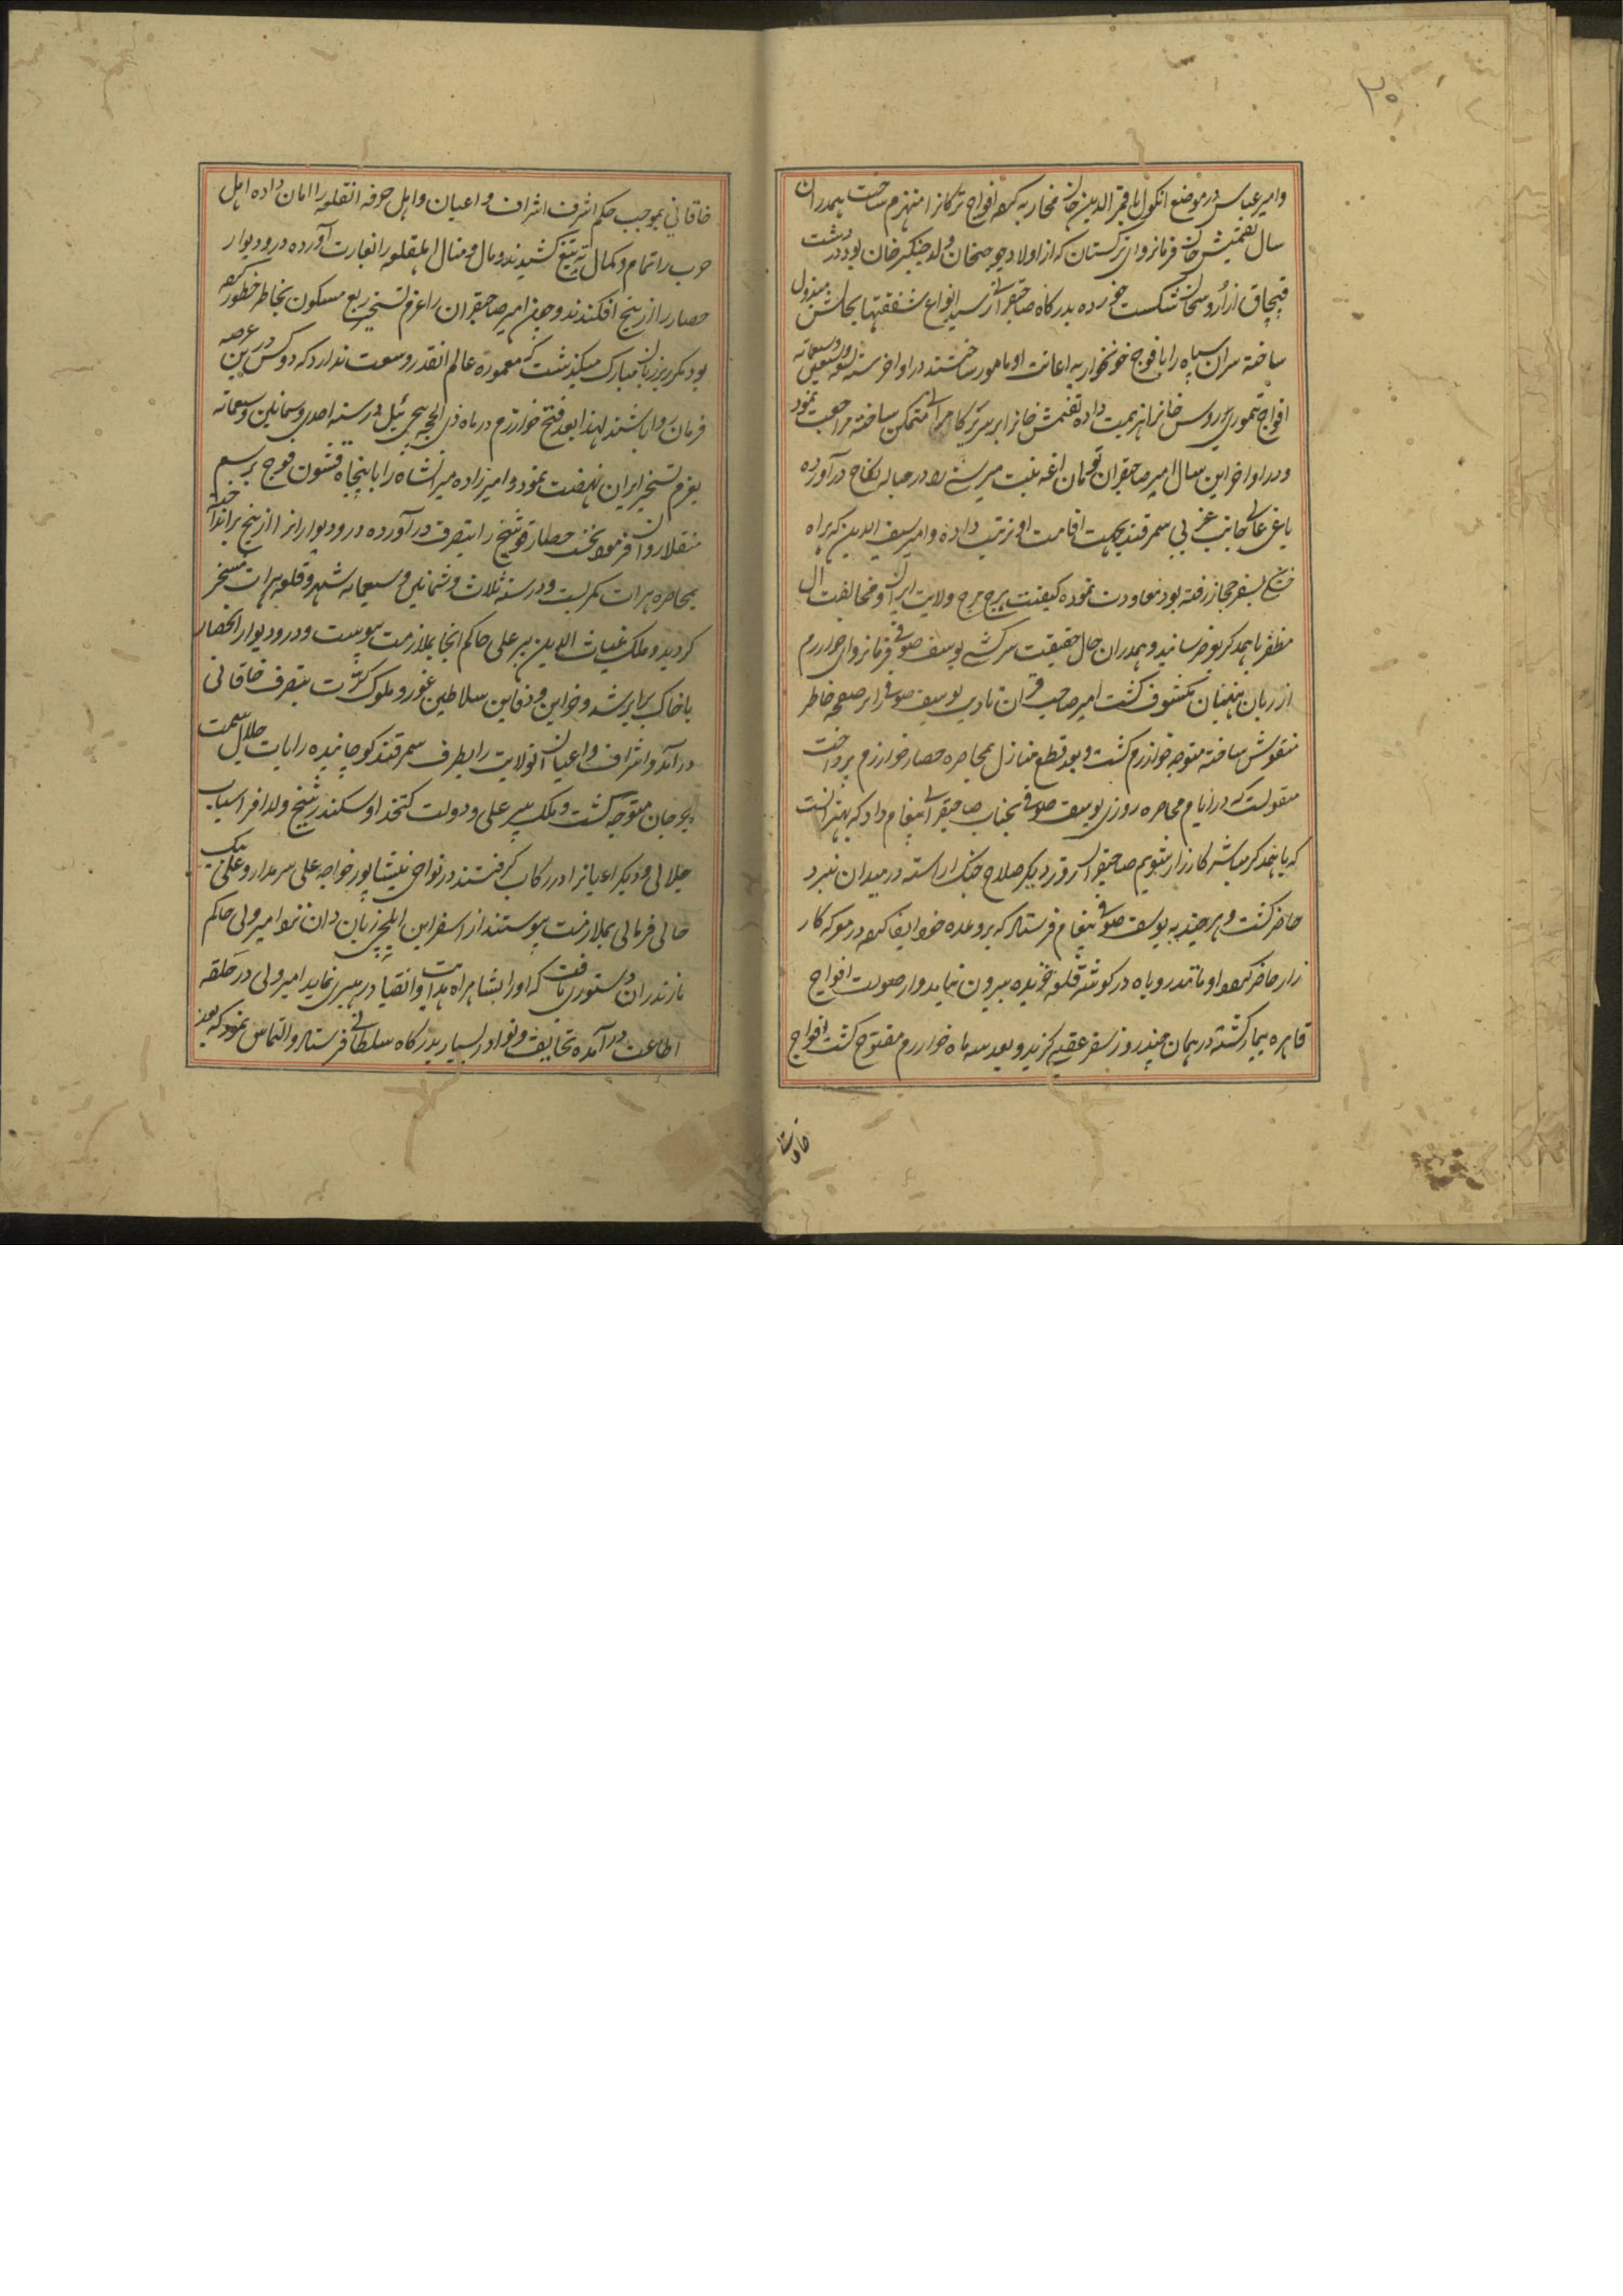 ۲۵
وامیر عباس در موضع انکول با قمر الدین خان محاربه کرده افواج ترکانرا منهزم ساخت همدران
سال تقتمیش خان فرمانروای ترکستان که از اولاد جوجیخان ولد چنکیز خان بود در دشت
قپچاق از اروسخان شکست خورده بدرکاه صاحبقرانی رسید انواع شفقتها بحالش مبذول
ساخته سران سپاه را با فوج خونخوار به اعانت او مامور ساختند در اواخر سنه وسبعمائه
افواج تیموری اروس خانرا هزیمت داده تقتمش خانرا بر سریر کامرانی متمکن ساخته مراجعت نمود
و در اواخر این سال امیر صاحبقران تومان اغه بنت میر موسی را در حباله نکاح در آورده
باغی عالی جانب غربی سمرقند بجهت اقامت او ترتیب داده و امیر سیف الدین که براه
بسفر حجاز رفته بود معاودت نموده کیفیت هرج مرج ولایت ایران و مخالفت ال
مظفر با همدکر بعرض رسانید و همدران حال حقیقت سرکشی یوسف صوفی فرمانروای خوارزم
از زبان منهیان مکشوف کشت امیر صاحبقران تادیب یوسف صوفی را بر صفحه خاطر
منقوش ساخته متوجه خوارزم کشت و بعد قطع منازل بمحاصره حصار خوارزم پرداخت
منقولست که در ایام محاصره روزی یوسف صوفی بجناب صاحبقرانی پیغام داد که بهتر انست
که با همدکر مباشر کارزار شویم صاحبقران روز دیکر صلاح جنک اراسته در میدان نبرد
حاضر کشت و هر چند به یوسف صوفی پیغام فرستاد که بر وعده خود ایفا کرده در معرکه کار
زار حاضر شود او مانند روباه در کوشه قلعه خزیده بیرون نیامد و از صولت افواج
قاهره بیمار کشته در همان چند روز سفر عقبی کزید و بعد سه ماه خوارزم مفتوح کشت افواج
خاقانی
خاقانی بموجب حکم اشرف اشراف و اعیان و اهل حرفه انقلعه را امان داده اهل
حرب را تمام و کمال به تیغ کشیدند و مال و منال اهل قلعه را بغارت آورده در و دیوار
حصار را از بیخ افکندند و چون امیر صاحبقران را عزم تسخیر ربع مسکون بخاطر خطور کرده
بود مکرر بر زبان مبارک میکذشت که معموره عالم انقدر وسعت ندارد که دو کس در عرصه این
فرمان روا باشند لهذا بعد فتح خوارزم در ماه ذی الحجه پیچی ئیل در سنه احدی وثمانین وسبعمائه
بعزم تسخیر ایران نهضت نمود و امیرزاده میرانشاه را با پنجاه قشون فوج برسم
منقلا روان فرمود نخست حصار فوشنج را بتصرف در آورده در و دیوار انرا از بیخ برانداخته
بمحاصره هرات کمر بست و در سنه ثلاث و ثمانین و سبعمائه شهر و قلعه هرات مسخر
کردید و ملک غیاث الدین پیر علی حاکم انجا بملازمت پیوست و در و دیوار انحصار
با خاک برابر شد و خزاین و دفاین سلاطین غور و ملوک کرت بتصرف خاقانی
در آمد و اشراف و اعیان انولایت را بطرف سمرقند کوچانیده رایات جلال بسمت
جرجان متوجه کشت و ملک پیر علی و دولت کتخدا و سکندر شیخ ولد افراسیاب
جلالی و دیکر اعیانرا در رکاب کرفتند در نواحی نیشاپور خواجه علی سربدار و علی بیک
جانی قربانی بملازمت پیوستند از اسفراین ایلچی زبان دان نزد امیر ولی حاکم
مازندران دستوری یافت که او را بشاهراه هدایت و انقیاد رهبری نماید امیر ولی در حلقه
اطاعت در آمده تحایف و نوادر بسیار بدرکاه سلطانی فرستاد و التماس نمود که بعد